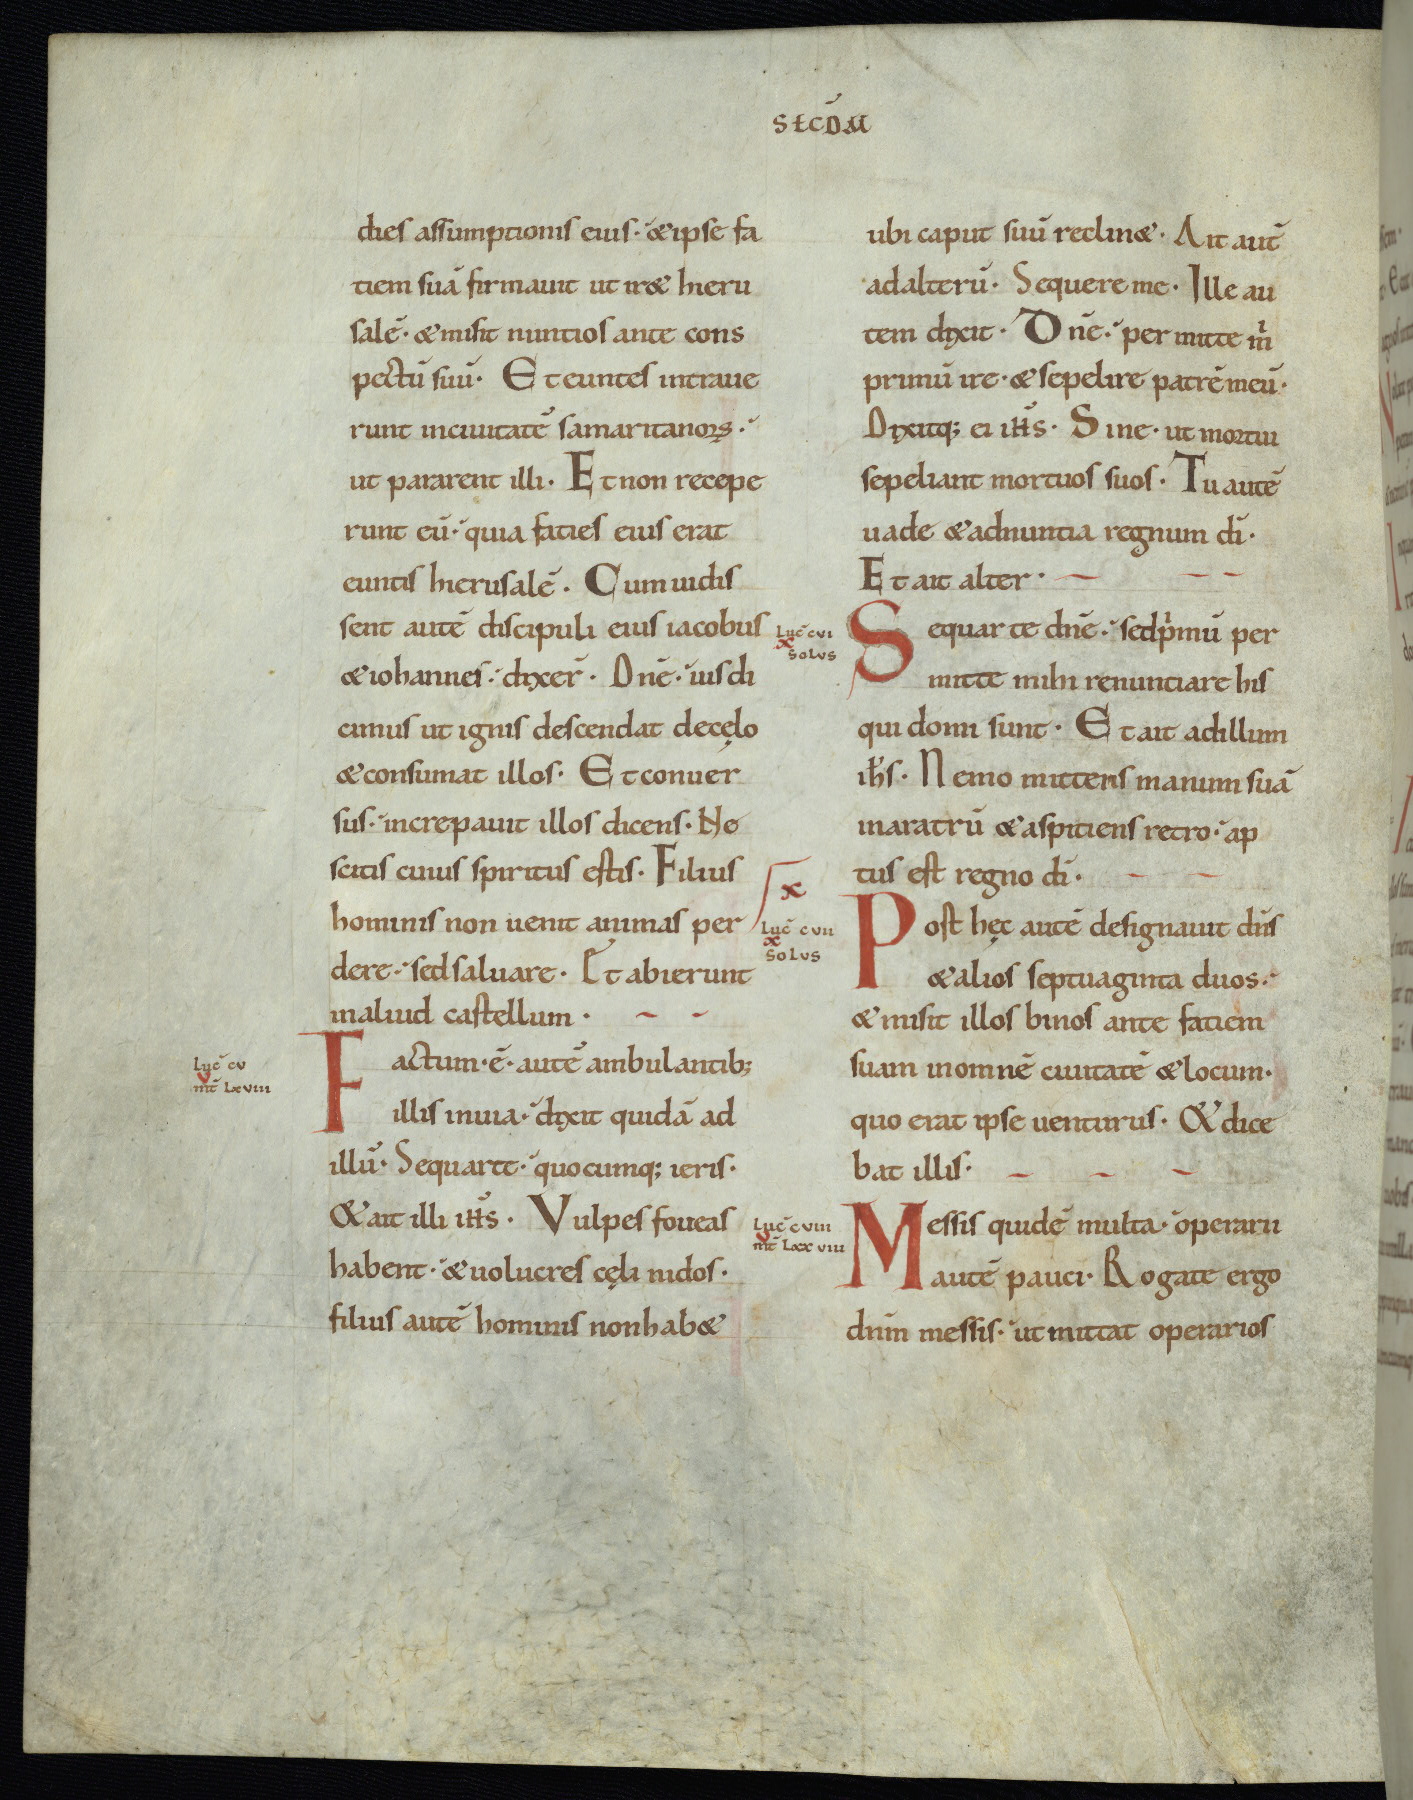 SECDM̄
dies assumptionis eius· & ipse fa
tiem suā firmauit ut ir& hieru
salē· & misit nuntios ante cons
pectū suū· Et euntes intraue
runt inciuitatē samaritanoꝝ·
ut pararent illi· Et non recepe
runt eū· quia faties eius erat
euntis hierusalē· Cum uidis
sent autē discipuli eius iacobus
& iohannes· dixer̄· Dn̄e· uis di
cimus ut ignis descendat decęlo
& consumat illos· Et conuer
sus· increpauit illos dicens· Ne
scitis cuius spiritus estis· Filius
hominis non uenit animas per
dere· sed saluare· Et abierunt
inaliud castellum·
Luc̄ cv
mt̄ Lxviii
Factum· ē· autē ambulantib;
illis inuia· dixit quidā ad
illū· Sequar te· quocumq; ieris·
& ait illi iħs· Vulpes foueas
habent· & uolucres cęli nidos·
filius autē hominis non hab&
ubi caput suū reclin&· Ait aut̄
ad alterū· Sequere me· Ille au
tem dixit· Dn̄e· permitte m̍
primū ire· & sepelire patrē meū·
Dixitq; ei iħs· Sine· ut mortui
sepeliant mortuos suos· Tu autē
uade & adnuntia regnum dī·
Et ait alter·
Luc̄ cvi
x
SoLVS
Sequar te dn̄e· sed p̍mū per
mitte mihi renuntiare his
qui domi sunt· Et ait ad illum
iħs· Nemo mittens manum suā
inaratrū & aspitiens retro· ap
tus est regno dī·
x
Luc̄ cvii
x
SoLVS
Post hęc autē designauit dn̄s
& alios septuaginta duos·
& misit illos binos ante fatiem
suam inomnē ciuitatē & locum·
quo erat ipse uenturus· & dice
bat illis·
Luc̄ cviii
v
mt̄ Lxxviii
Messis quidē multa· operarii
autē pauci· Rogate ergo
dn̄m messis· ut mittat operarios